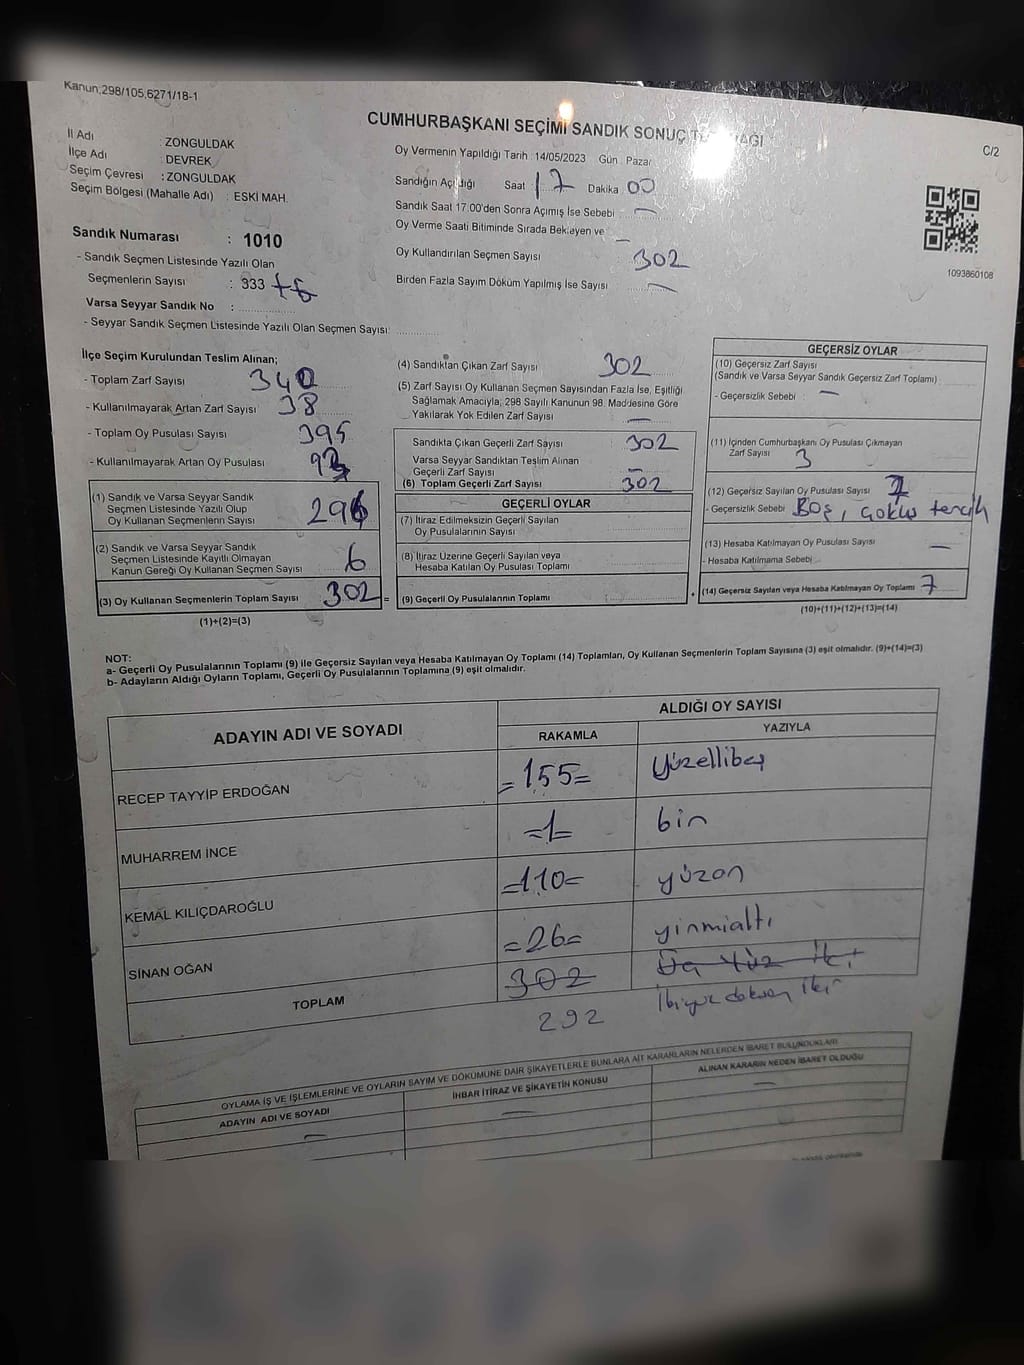 Kanun;298/105,6271/18-1
CUMHURBAŞKANI SEÇİMİ SANDIK SONUÇ
C/2
İl Adı : ZONGULDAK
İlçe Adı : DEVREK
Seçim Çevresi : ZONGULDAK
Seçim Bölgesi (Mahalle Adı) : ESKİ MAH.
Sandık Numarası : 1010
- Sandık Seçmen Listesinde Yazılı Olan
Seçmenlerin Sayısı : 333 +6
Varsa Seyyar Sandık No :
- Seyyar Sandık Seçmen Listesinde Yazılı Olan Seçmen Sayısı:
Oy Vermenin Yapıldığı Tarih : 14/05/2023 Gün : Pazar
Sandığın Açıldığı Saat 17 Dakika 00
Sandık Saat 17:00'den Sonra Açımış İse Sebebi : —
Oy Verme Saati Bitiminde Sırada Bekleyen ve
Oy Kullandırılan Seçmen Sayısı : 302
Birden Fazla Sayım Döküm Yapılmış İse Sayısı : —
1093860108
İlçe Seçim Kurulundan Teslim Alınan;
- Toplam Zarf Sayısı 340
- Kullanılmayarak Artan Zarf Sayısı 38
- Toplam Oy Pusulası Sayısı 395
- Kullanılmayarak Artan Oy Pusulası
(1) Sandık ve Varsa Seyyar Sandık
Seçmen Listesinde Yazılı Olup
Oy Kullanan Seçmenlerin Sayısı 296
(2) Sandık ve Varsa Seyyar Sandık
Seçmen Listesinde Kayıtlı Olmayan
Kanun Gereği Oy Kullanan Seçmen Sayısı 6
(3) Oy Kullanan Seçmenlerin Toplam Sayısı 302 =
(1)+(2)=(3)
(4) Sandıktan Çıkan Zarf Sayısı 302
(5) Zarf Sayısı Oy Kullanan Seçmen Sayısından Fazla İse, Eşitliği
Sağlamak Amacıyla; 298 Sayılı Kanunun 98. Maddesine Göre
Yakılarak Yok Edilen Zarf Sayısı —
Sandıkta Çıkan Geçerli Zarf Sayısı : 302
Varsa Seyyar Sandıktan Teslim Alınan
Geçerli Zarf Sayısı —
(6) Toplam Geçerli Zarf Sayısı 302
GEÇERLİ OYLAR
(7) İtiraz Edilmeksizin Geçerli Sayılan
Oy Pusulalarının Sayısı
(8) İtiraz Üzerine Geçerli Sayılan veya
Hesaba Katılan Oy Pusulası Toplamı
(9) Geçerli Oy Pusulalarının Toplamı +
GEÇERSİZ OYLAR
(10) Geçersiz Zarf Sayısı
(Sandık ve Varsa Seyyar Sandık Geçersiz Zarf Toplamı)
- Geçersizlik Sebebi : —
(11) İçinden Cumhurbaşkanı Oy Pusulası Çıkmayan
Zarf Sayısı 3
(12) Geçersiz Sayılan Oy Pusulası Sayısı 7
- Geçersizlik Sebebi Boş, çoklu tercih
(13) Hesaba Katılmayan Oy Pusulası Sayısı —
- Hesaba Katılmama Sebebi
(14) Geçersiz Sayılan veya Hesaba Katılmayan Oy Toplamı 7
(10)+(11)+(12)+(13)=(14)
NOT:
a- Geçerli Oy Pusulalarının Toplamı (9) ile Geçersiz Sayılan veya Hesaba Katılmayan Oy Toplamı (14) Toplamları, Oy Kullanan Seçmenlerin Toplam Sayısına (3) eşit olmalıdır. (9)+(14)=(3)
b- Adayların Aldığı Oyların Toplamı, Geçerli Oy Pusulalarının Toplamına (9) eşit olmalıdır.
ADAYIN ADI VE SOYADI
ALDIĞI OY SAYISI
RAKAMLA YAZIYLA
RECEP TAYYİP ERDOĞAN =155= yüzellibeş
MUHARREM İNCE =1= bin
KEMAL KILIÇDAROĞLU =110= yüzon
SİNAN OĞAN =26= yirmialtı
TOPLAM 302 Üç Yüz İki
292 İkiyüz doksan iki
OYLAMA İŞ VE İŞLEMLERİNE VE OYLARIN SAYIM VE DÖKÜMÜNE DAİR ŞİKAYETLERLE BUNLARA AİT KARARLARIN NELERDEN İBARET BULUNDUKLARI
ADAYIN ADI VE SOYADI İHBAR İTİRAZ VE ŞİKAYETİN KONUSU ALINAN KARARIN NEDEN İBARET OLDUĞU
— — —